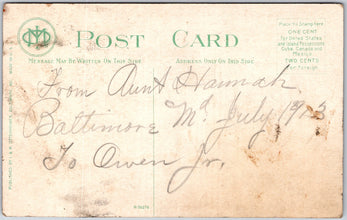 POST CARD
MESSAGE MAY BE WRITTEN ON THIS SIDE
ADDRESS ONLY ON THIS SIDE
Place the Stamp here
ONE CENT
for United States
and Island Possessions
Cuba, Canada and
Mexico
TWO CENTS
for Foreign
From Aunt Hannah
Baltimore Md July 1913
To Owen Jr.